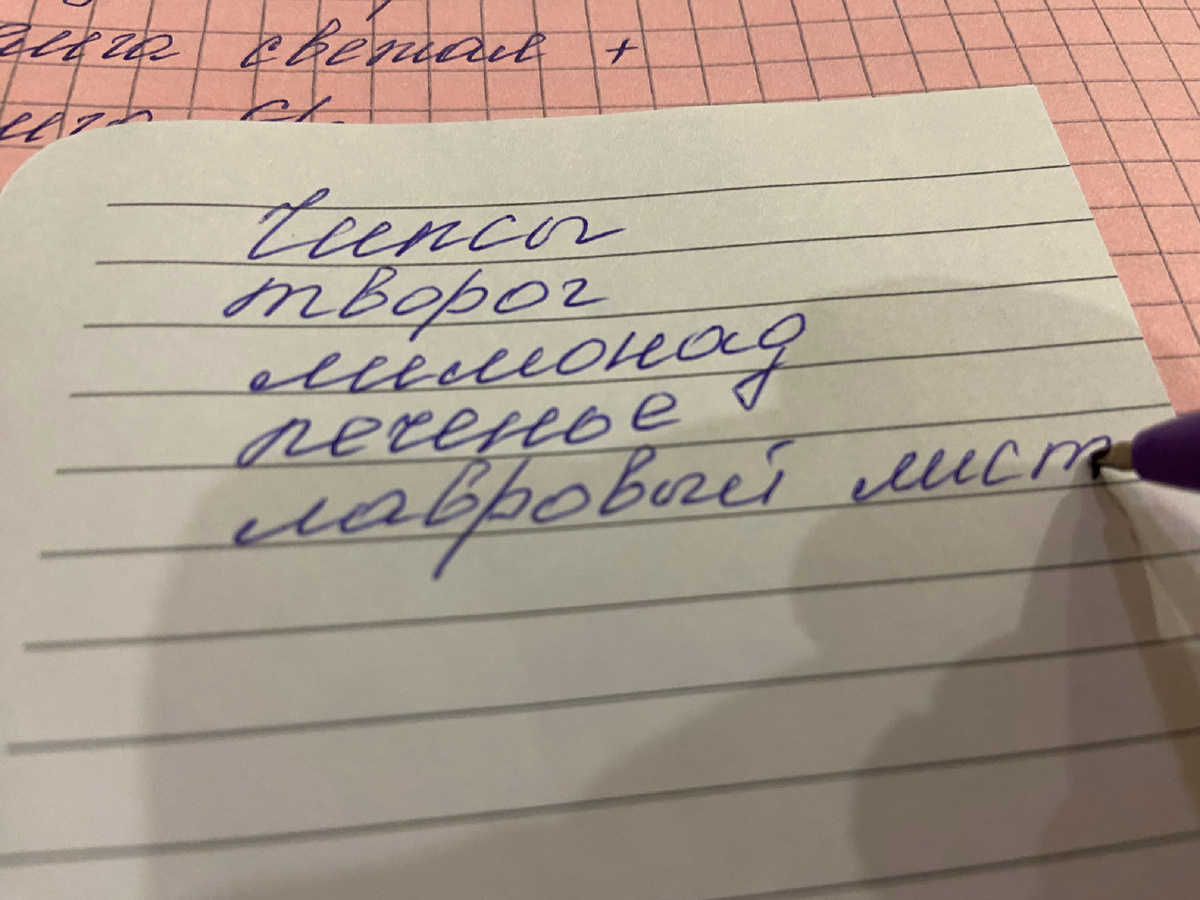 свежая +
Чипсы
творог
лимонад
печенье
лавровый лист